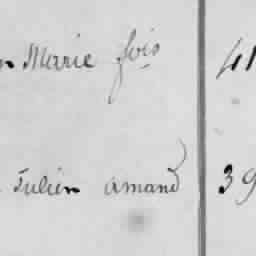 n Marie fois 41
Julien amand 39